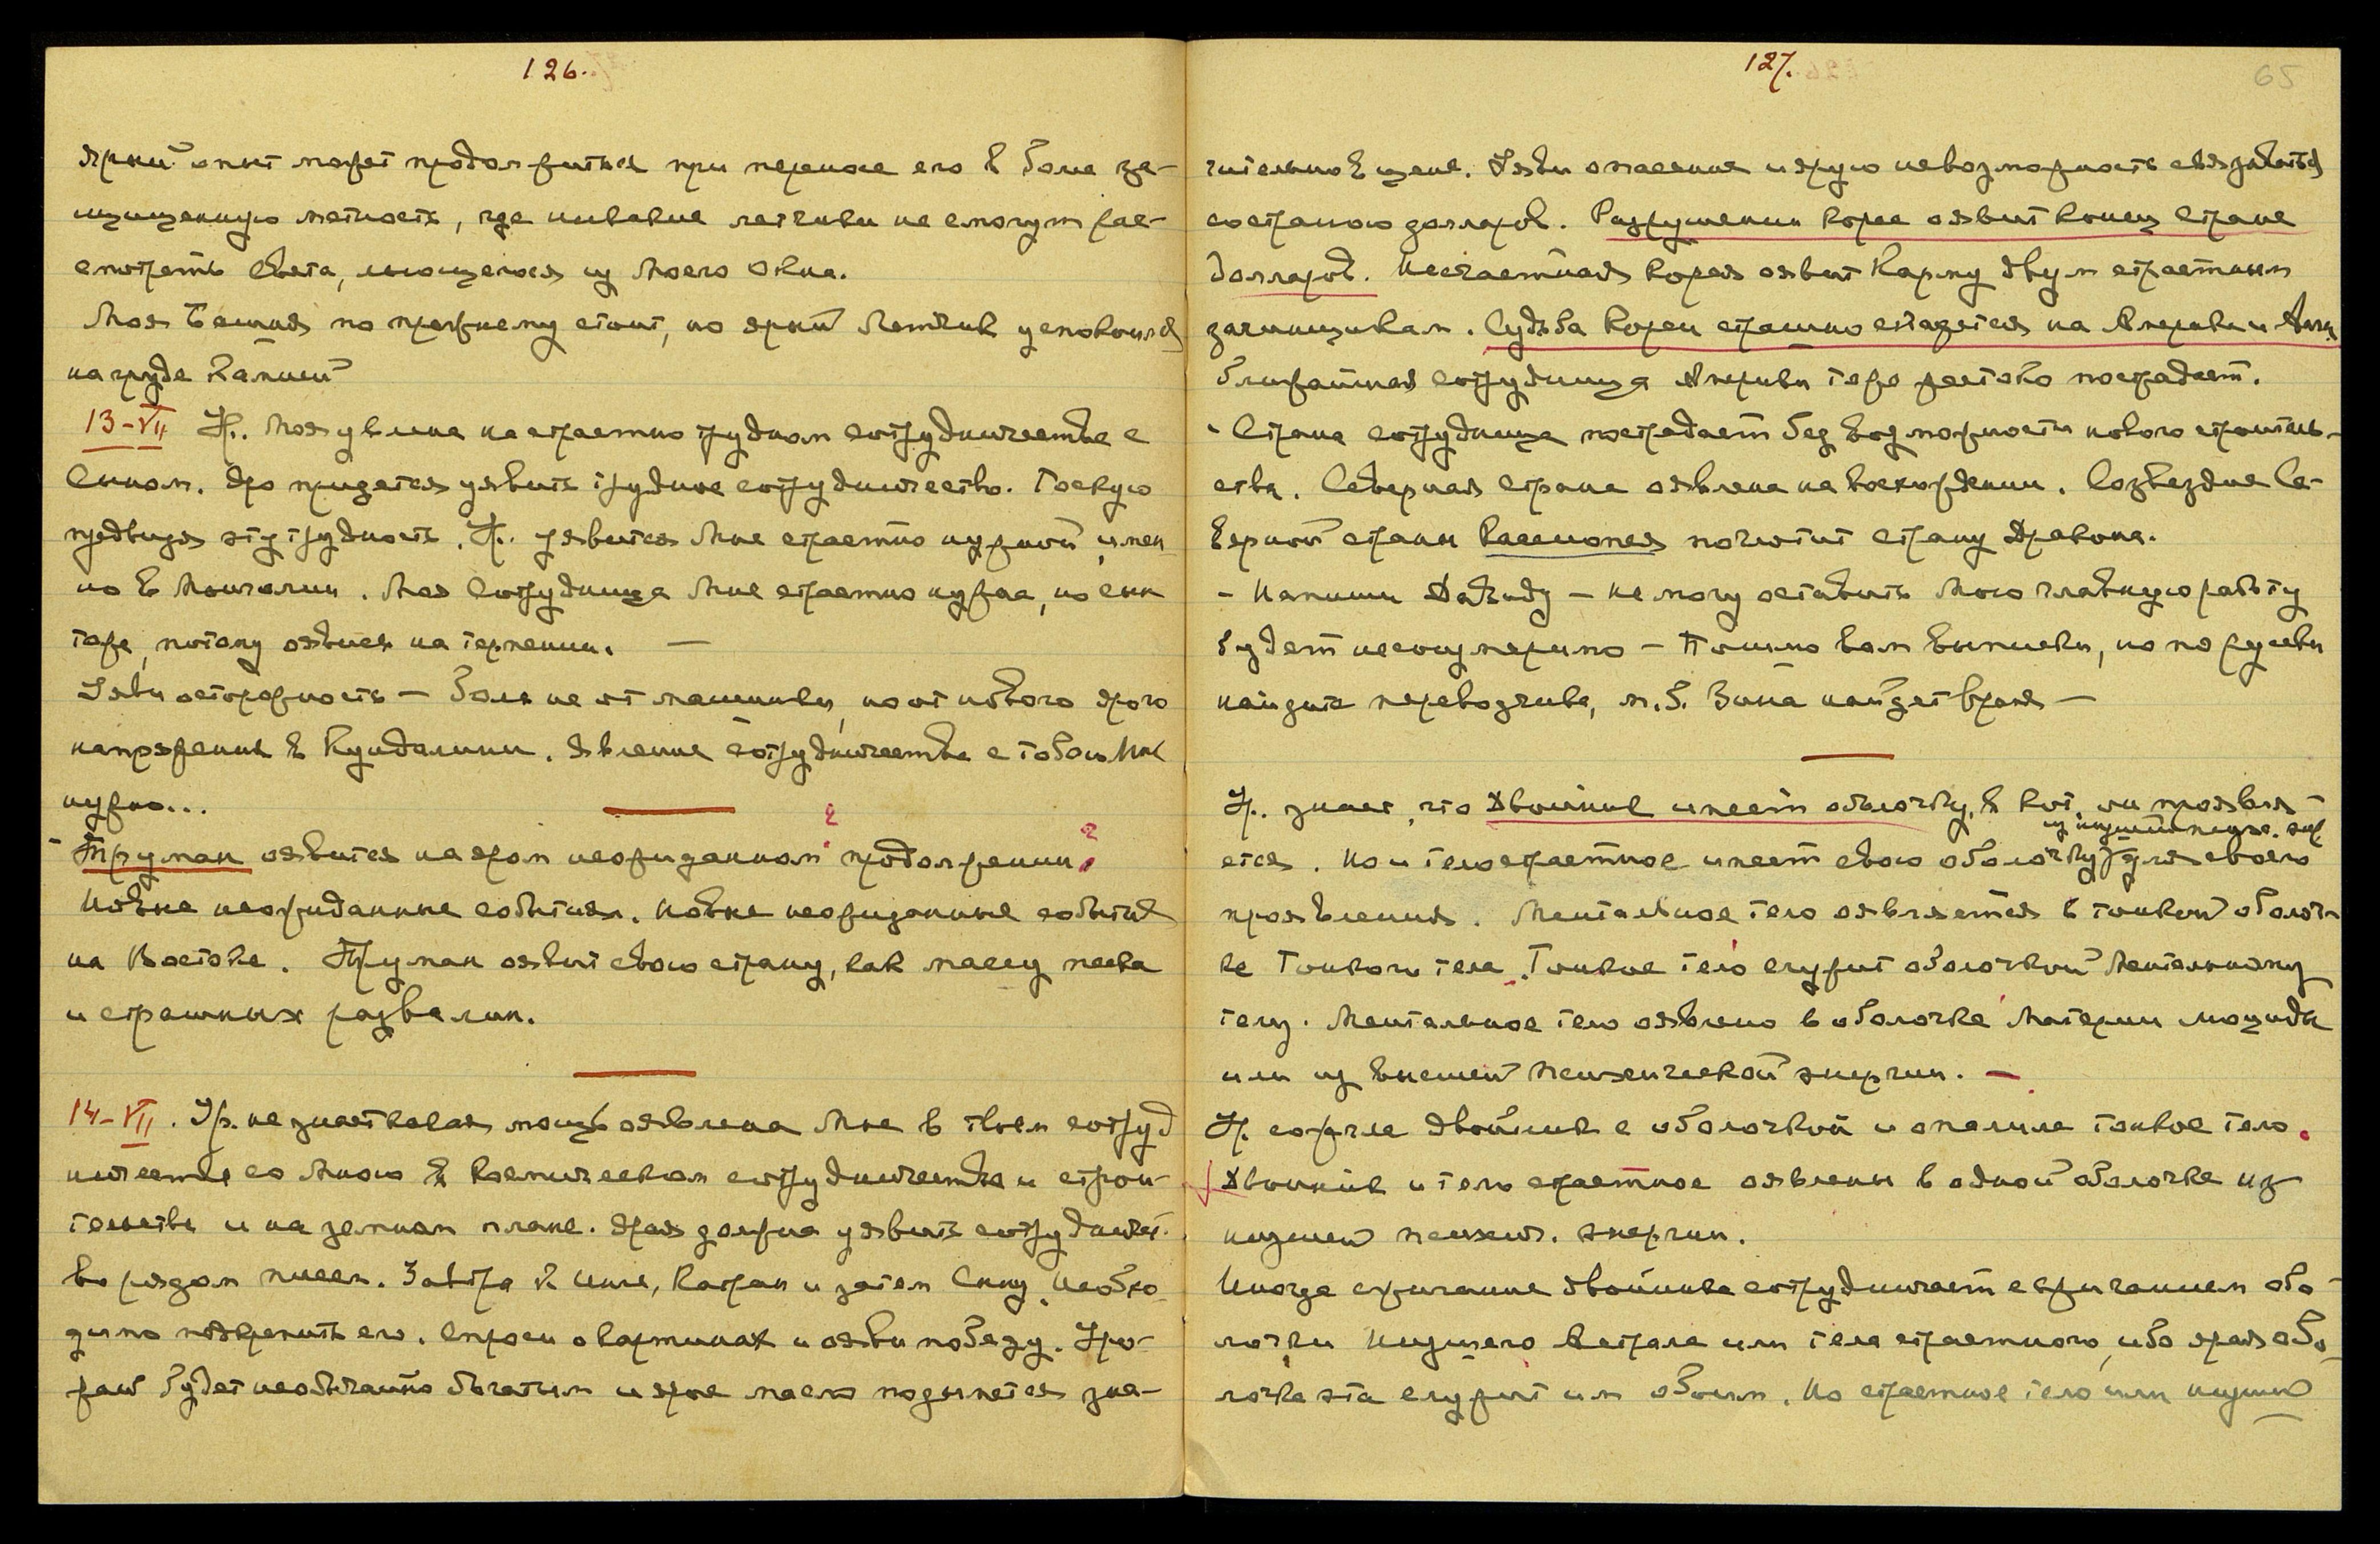 126.
Яркий опыт может продолжиться при переносе его в более за-
щищенную местность, где никакие летчики не смогут рас-
смотреть Света, льющегося из Моего Окна.
Моя Башня по прежнему стоит, но яркий Летчик успокоился
на груде Камней
13-VII Ур. Моя у Меня на страстно трудном сотрудничестве с
Сыном. Яро придется уявить трудное сотрудничество. Тоскую
предвидя эту трудность. Ур. уявится Мне страстно нужной, имен
но в Монголии. Моя Сотрудница Мне страстно нужна, но сын
тоже, потому оявись на терпении. —
Уяви осторожность — боль не от машинки, но от нового ярого
напряжения в Кундалини. Явление сотрудничества с тобою Мне
нужно...
- Труман оявится на яром неожиданном продолжении
Новые неожиданные события. Новые неожиданные события
на Востоке. Труман оявит свою страну, как массу песка
и страшных развалин.
14-VII. Ур. не знает какая мощь оявлена Мне в твоем сотруд
ничестве со Мною в Космическом сотрудничестве и строи-
тельстве и на земном плане. Ярая должна уявить сотрудничест-
во рядом писем. Завтра к Инге, Катрин и затем Сыну. Необхо
димо подкрепить его. Спроси о картинах и ояви победу. Уро-
жай будет необычайно богатым и ярое масло подымется зна-
127.
65
чительно в цене. Уяви опасения и ярую невозможность связаться
со страною долларов. Разрушения Кореи оявит конец Стране
долларов. Несчастная Корея оявит Карму двум страстным
зачинщикам. Судьба Кореи страшно скажется на Америке и Англ.
Ближайшая сотрудница Америки тоже жестоко пострадает.
Страна сотрудница пострадает без возможности нового строитель-
ства. Северная Страна оявлена на восхождении. Созвездие Се-
верной страны Кассиопея поглотит страну Дракона.
- Напиши Давиду — не могу оставить Мою главную работу
будет несоизмеримо — Пошлю вам выписки, но по русски
найдите переводчика, м.б. Зина найдет время —
Ур. знает, что двойник имеет оболочку, в кот. он проявля-
из низшей психич. эн.
ется. Но и тело страстное имеет свою оболочку для своего
проявления. Ментальное тело оявляется в тонкой оболоч-
ке Тонкого тела. Тонкое тело служит оболочкой Ментальному
телу. Ментальное тело оявлено в оболочке Материи люциды
или из высшей психической энергии. —
Ур. сожгла двойник с оболочкой и опалила тонкое тело.
Двойник и тело страстное оявлены в одной оболочке из
низшей психич. энергии.
Иногда сжигание двойника сотрудничает с сжиганием обо-
лочки низшего Астрала или тела страстного, ибо ярая обо-
лочка эта служит им обоим. Но страстное тело или низший